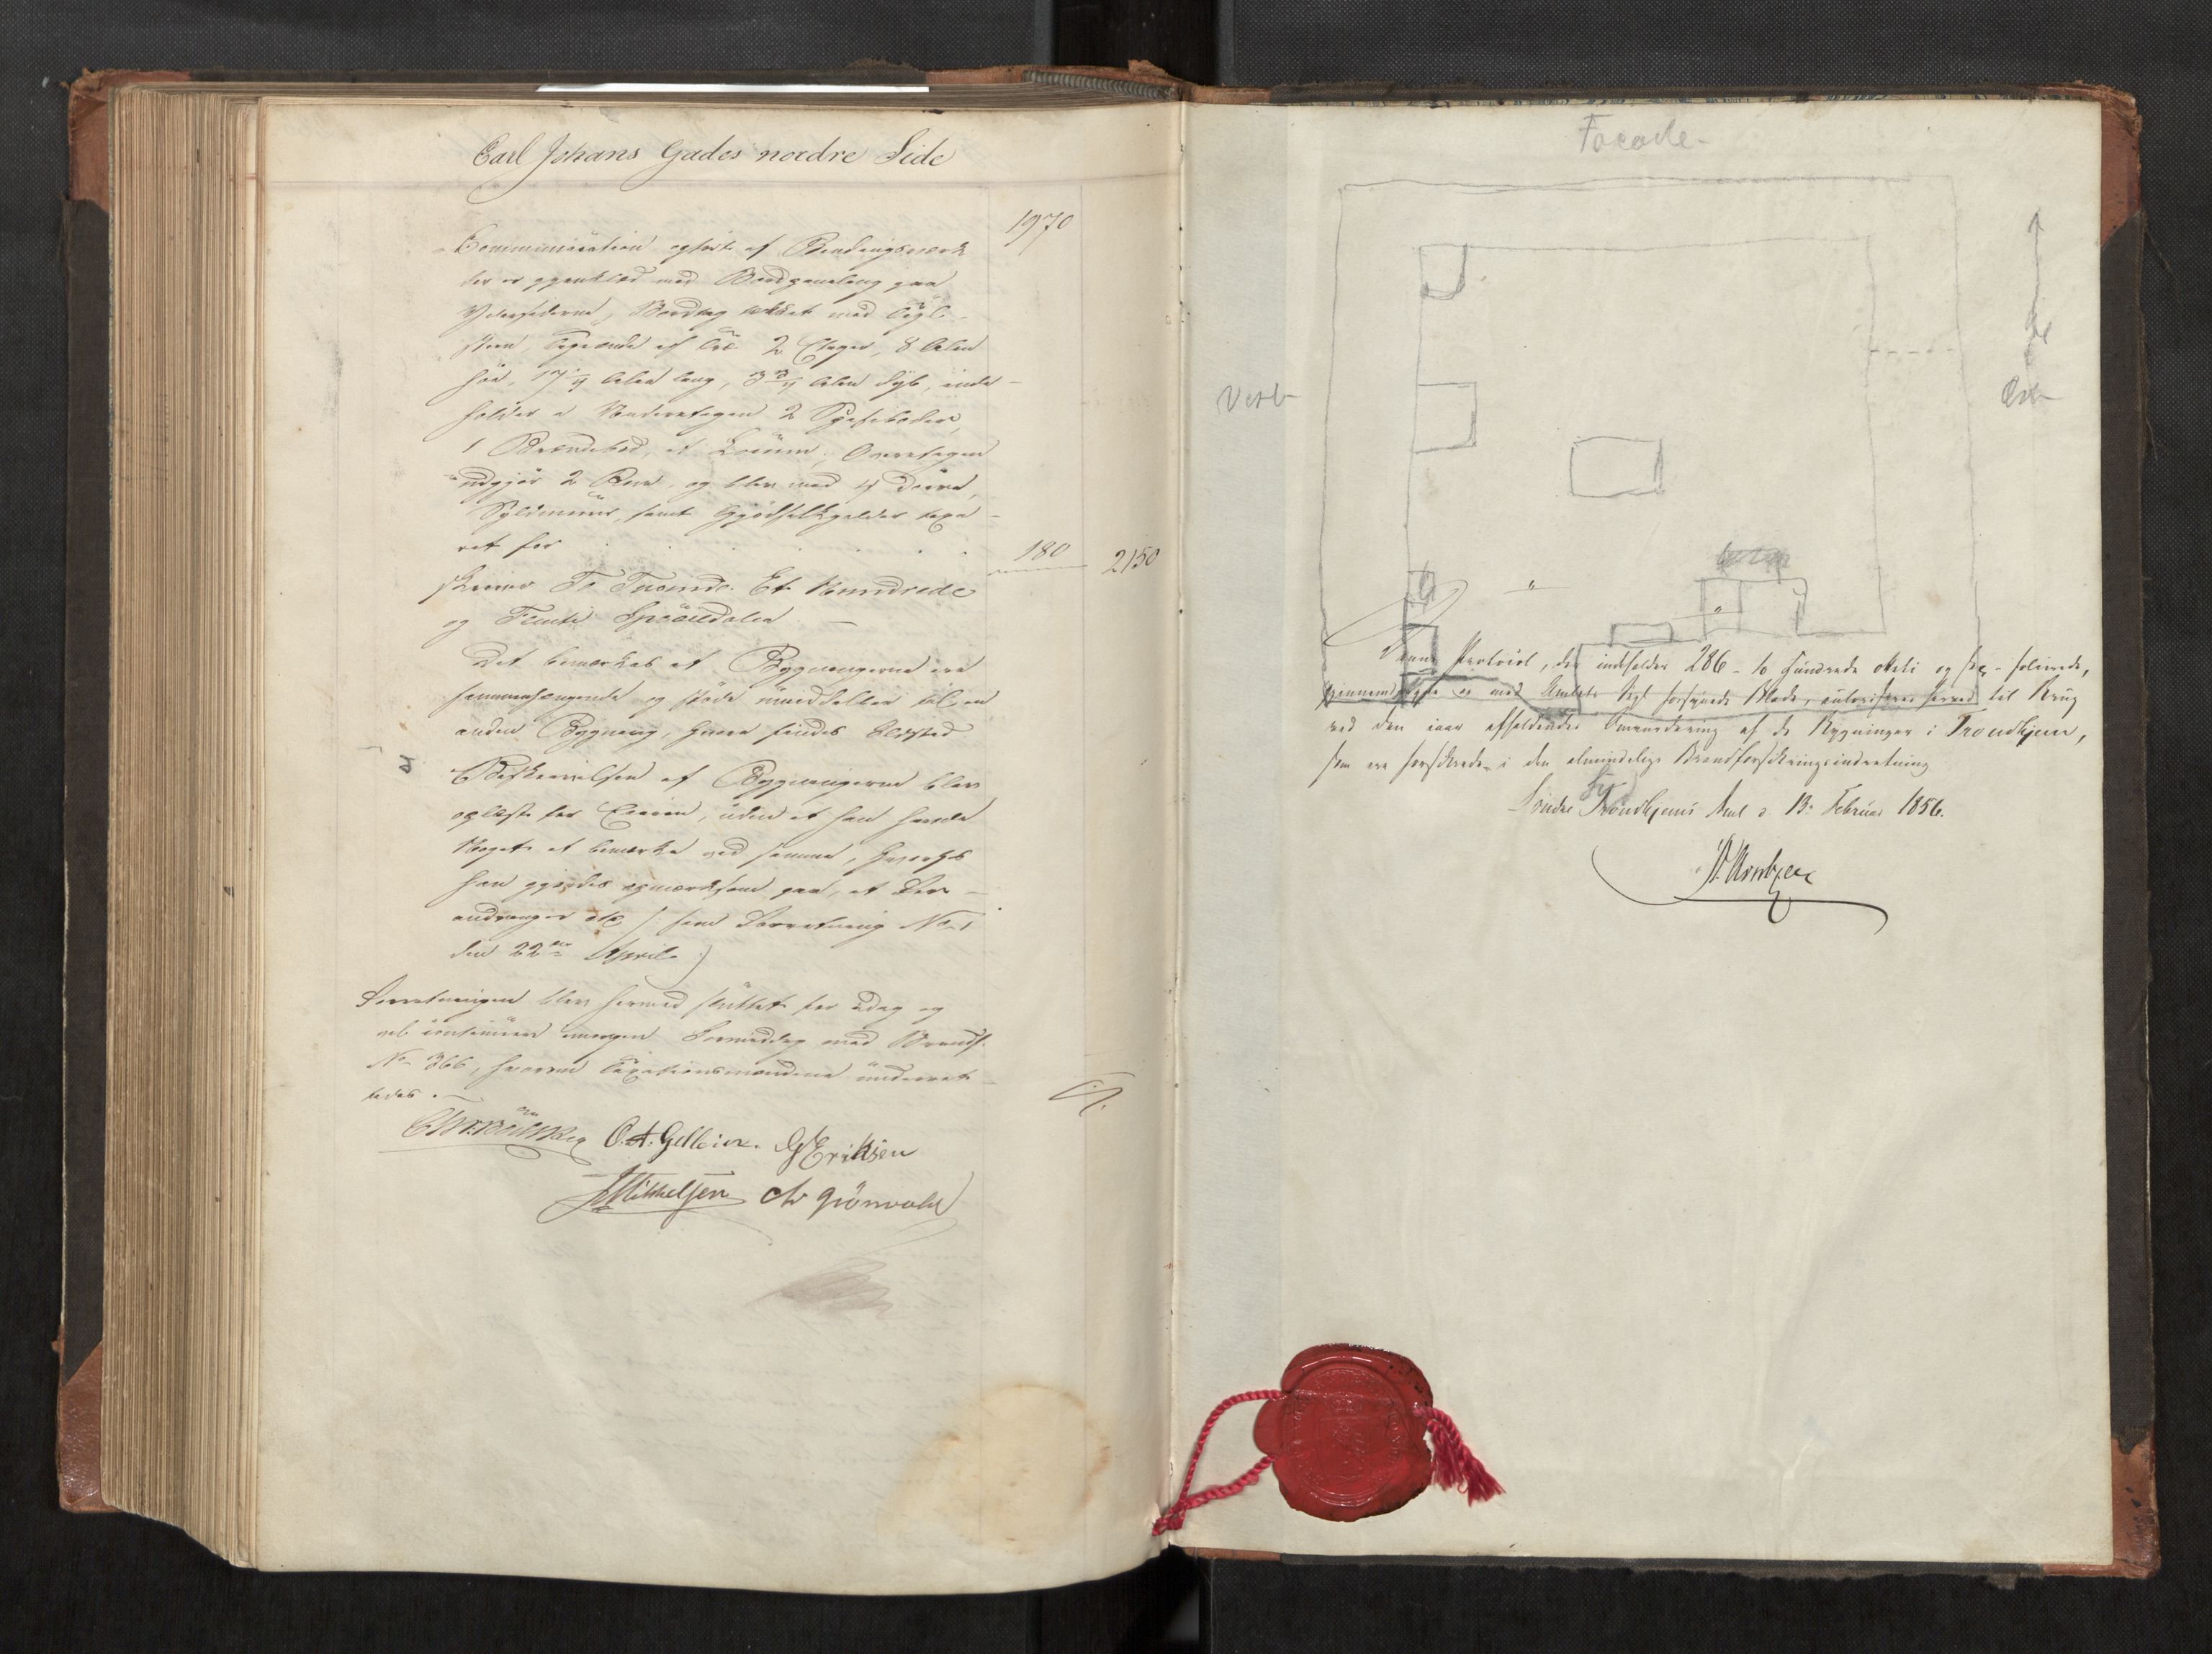 Carl Johans Gades nordre Side
1970
Communication opført af Bindingsværk
der er panelklæd med Bordpaneling paa
Ydersiderne, Bordtag tækket med Tagl-
steen, 2 Etager, 8 Alen
høi, 17 1/4 Alen lang, 3 3/4 Alen dyb, inde-
holder i Underetagen 2 Spiseboder,
1 Brændebod, et Locum; Overetagen
udgjør 2 Rum, og blev med 4 Dørre,
Syldmuur, samt Gjødselkjelder taxe-
ret for . . . . . . 180 2150
skriver To Tusinde Et Hundrede
og Femti Speciedaler
Det bemærkes at Bygningerne ere
sammenhængende og støde umiddelbar til en
anden Bygning, hvori findes Ildsted
Beskrivelsen af Bygningerne blev
oplæst for Eieren, uden at han havde
Noget at bemærke ved samme, hvorhos
han gjordes opmærksom paa, at For-
andringer etc (: som Forretning No 1
den 22de April :)
Forretningen blev hermed sluttet for idag og
vil continuere imorgen Formiddag med Brandf.
No 366, hvorom Taxationsmændene underret-
tedes.
O. A. Gellein. Eriksen
Mikkelsen Chr Grönvold
Facade
Vest
Øst
Denne Protocol, der indeholder 286 - to hundrede otteti og sex - folierede,
gjennemdragne og med Amtets Segl forsynede Blade, autoriseres herved til Brug
ved den iaar afholdendes Omvurdering af de Bygninger i Trondhjem,
som ere forsikrede i den almindelige Brandforsikringsindretning
Syd
Søndre Trondhjems Amt d. 13. Februar 1856.